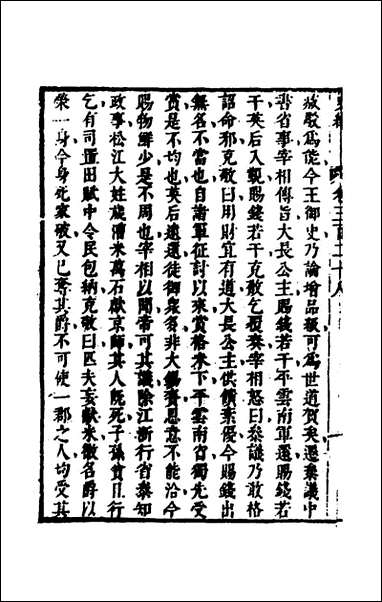 卷三百二十八
減駁爲能今王御史乃論增品級可爲世道賀矣遷叅議中
書省事宰相傳旨大長公主賜錢若干平雲南軍還賜錢若
干英后入覲賜錢若干克敬乞覆奏宰相怒曰叅議乃敢格
詔命邪克敬曰用財宜有道大長公主供饋素優今賜錢出
無名不當也自諸軍征討以來賞格未下平雲南省獨先受
賞是不均也英后遠還徒御衆多非大錫賚恩意不能洽今
賜物鮮少是不周也宰相以聞帝可其議除江浙行省叅知
政事松江大姓歲漕米萬石獻京師其人既死子孫貧且行
乞有司置田賦中令民包納克敬曰匹夫妄獻米徼名爵以
榮一身今身死家破又已奪其爵不可使一郡之人均受其